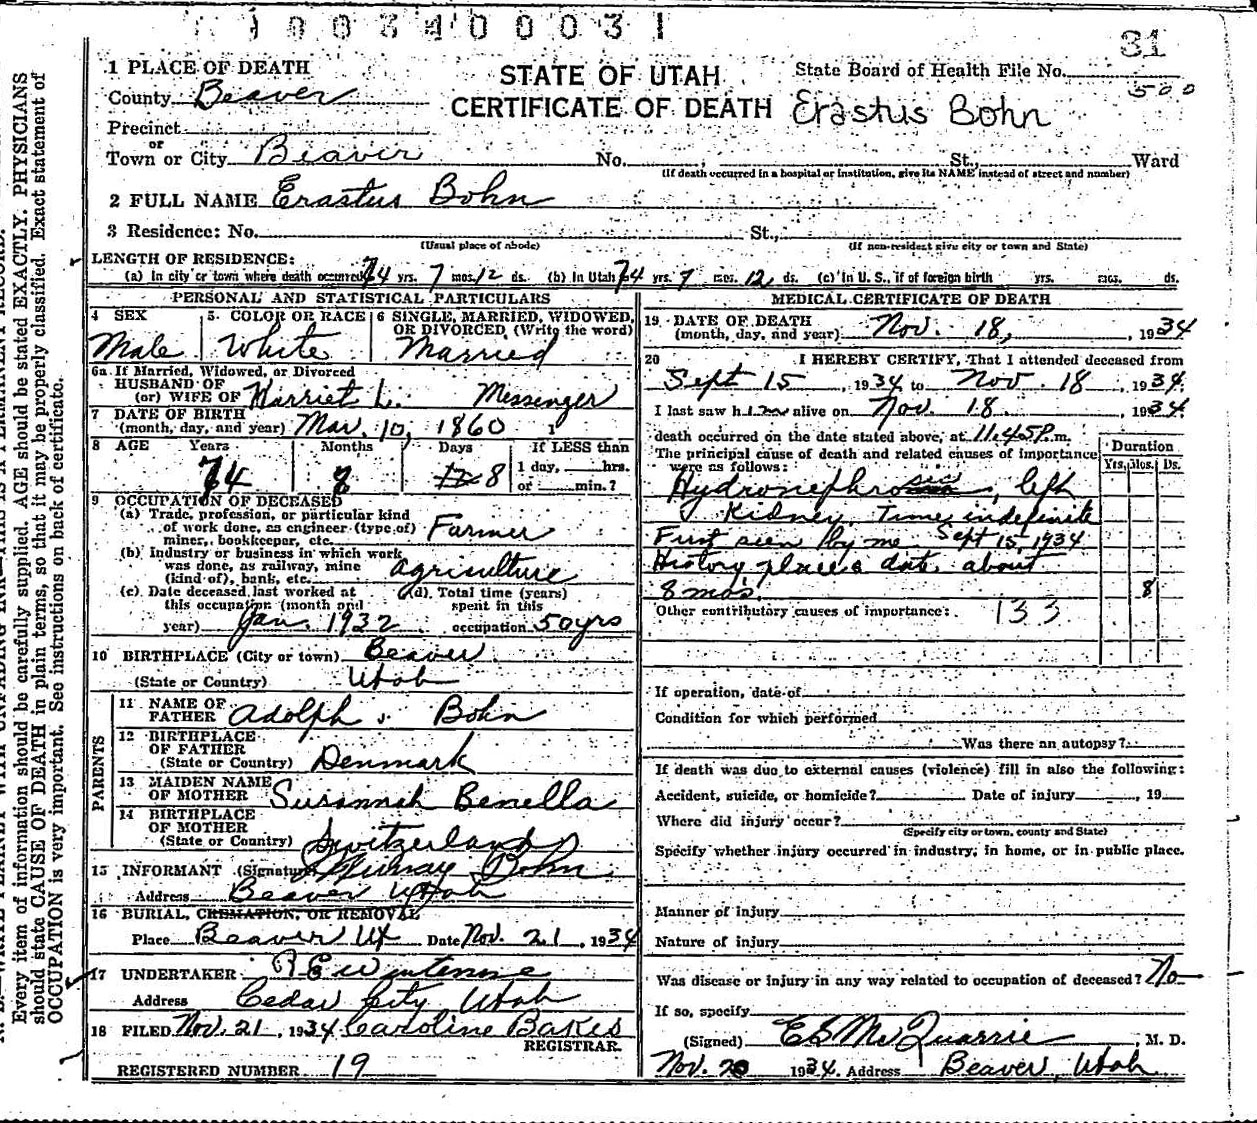 1003400031
31
1 PLACE OF DEATH
STATE OF UTAH
State Board of Health File No.
500
County Beaver
CERTIFICATE OF DEATH
Erastus Bohn
Precinct
or
Town or City Beaver No. St., Ward
(If death occurred in a hospital or institution, give its NAME instead of street and number)
2 FULL NAME Erastus Bohn
3 Residence: No. St.,
(Usual place of abode) (If non-resident give city or town and State)
LENGTH OF RESIDENCE:
(a) In city or town where death occurred 74 yrs. 7 mos. 12 ds. (b) In Utah 74 yrs. 7 mos. 12 ds. (c) In U.S., if of foreign birth yrs. mos. ds.
PERSONAL AND STATISTICAL PARTICULARS
4 SEX
Male
5. COLOR OR RACE
White
6 SINGLE, MARRIED, WIDOWED, OR DIVORCED, (Write the word)
Married
6a If Married, Widowed, or Divorced
HUSBAND OF
(or) WIFE OF Harriet L. Messenger
7 DATE OF BIRTH
(month, day, and year) Mar. 10, 1860
8 AGE Years Months Days If LESS than
74 8 8 1 day, hrs.
or min.?
9 OCCUPATION OF DECEASED
(a) Trade, profession, or particular kind
of work done, as engineer (type of)
miner, bookkeeper, etc. Farmer
(b) Industry or business in which work
was done, as railway, mine
(kind of), bank, etc. Agriculture
(c) Date deceased last worked at
this occupation (month and
year) Jan. 1932
(d). Total time (years)
spent in this
occupation 50 yrs
10 BIRTHPLACE (City or town) Beaver
(State or Country) Utah
PARENTS
11 NAME OF
FATHER Adolph Bohn
12 BIRTHPLACE
OF FATHER
(State or Country) Denmark
13 MAIDEN NAME
OF MOTHER Susannah Benella
14 BIRTHPLACE
OF MOTHER
(State or Country) Switzerland
15 INFORMANT (Signature) Murray Bohn
Address Beaver Utah
16 BURIAL, CREMATION, OR REMOVAL
Place Beaver Ut Date Nov. 21, 1934
17 UNDERTAKER
Address Cedar City Utah
18 FILED Nov. 21, 1934 Caroline Bakes
REGISTRAR
REGISTERED NUMBER 19
MEDICAL CERTIFICATE OF DEATH
19 DATE OF DEATH
(month, day, and year) Nov. 18, , 1934
20 I HEREBY CERTIFY, That I attended deceased from
Sept 15, 1934 to Nov. 18, 1934.
I last saw him alive on Nov. 18, 1934
death occurred on the date stated above, at 11.45P.m.
The principal cause of death and related causes of importance
were as follows:
Duration
Yrs. Mos. Ds.
Hydronephrosis, left
Kidney. Time indefinite
First seen by me Sept 15, 1934
History places date about
8 mos. 8
Other contributory causes of importance: 133
If operation, date of
Condition for which performed
Was there an autopsy?
If death was due to external causes (violence) fill in also the following:
Accident, suicide, or homicide? Date of injury , 19
Where did injury occur?
(Specify city or town, county and State)
Specify whether injury occurred in industry, in home, or in public place.
Manner of injury
Nature of injury
Was disease or injury in any way related to occupation of deceased? No
If so, specify
(Signed) E S McQuarrie, M. D.
Nov. 20 1934. Address Beaver, Utah
Every item of information should be carefully supplied. AGE should be stated EXACTLY. PHYSICIANS
should state CAUSE OF DEATH in plain terms, so that it may be properly classified. Exact statement of
OCCUPATION is very important. See instructions on back of certificate.